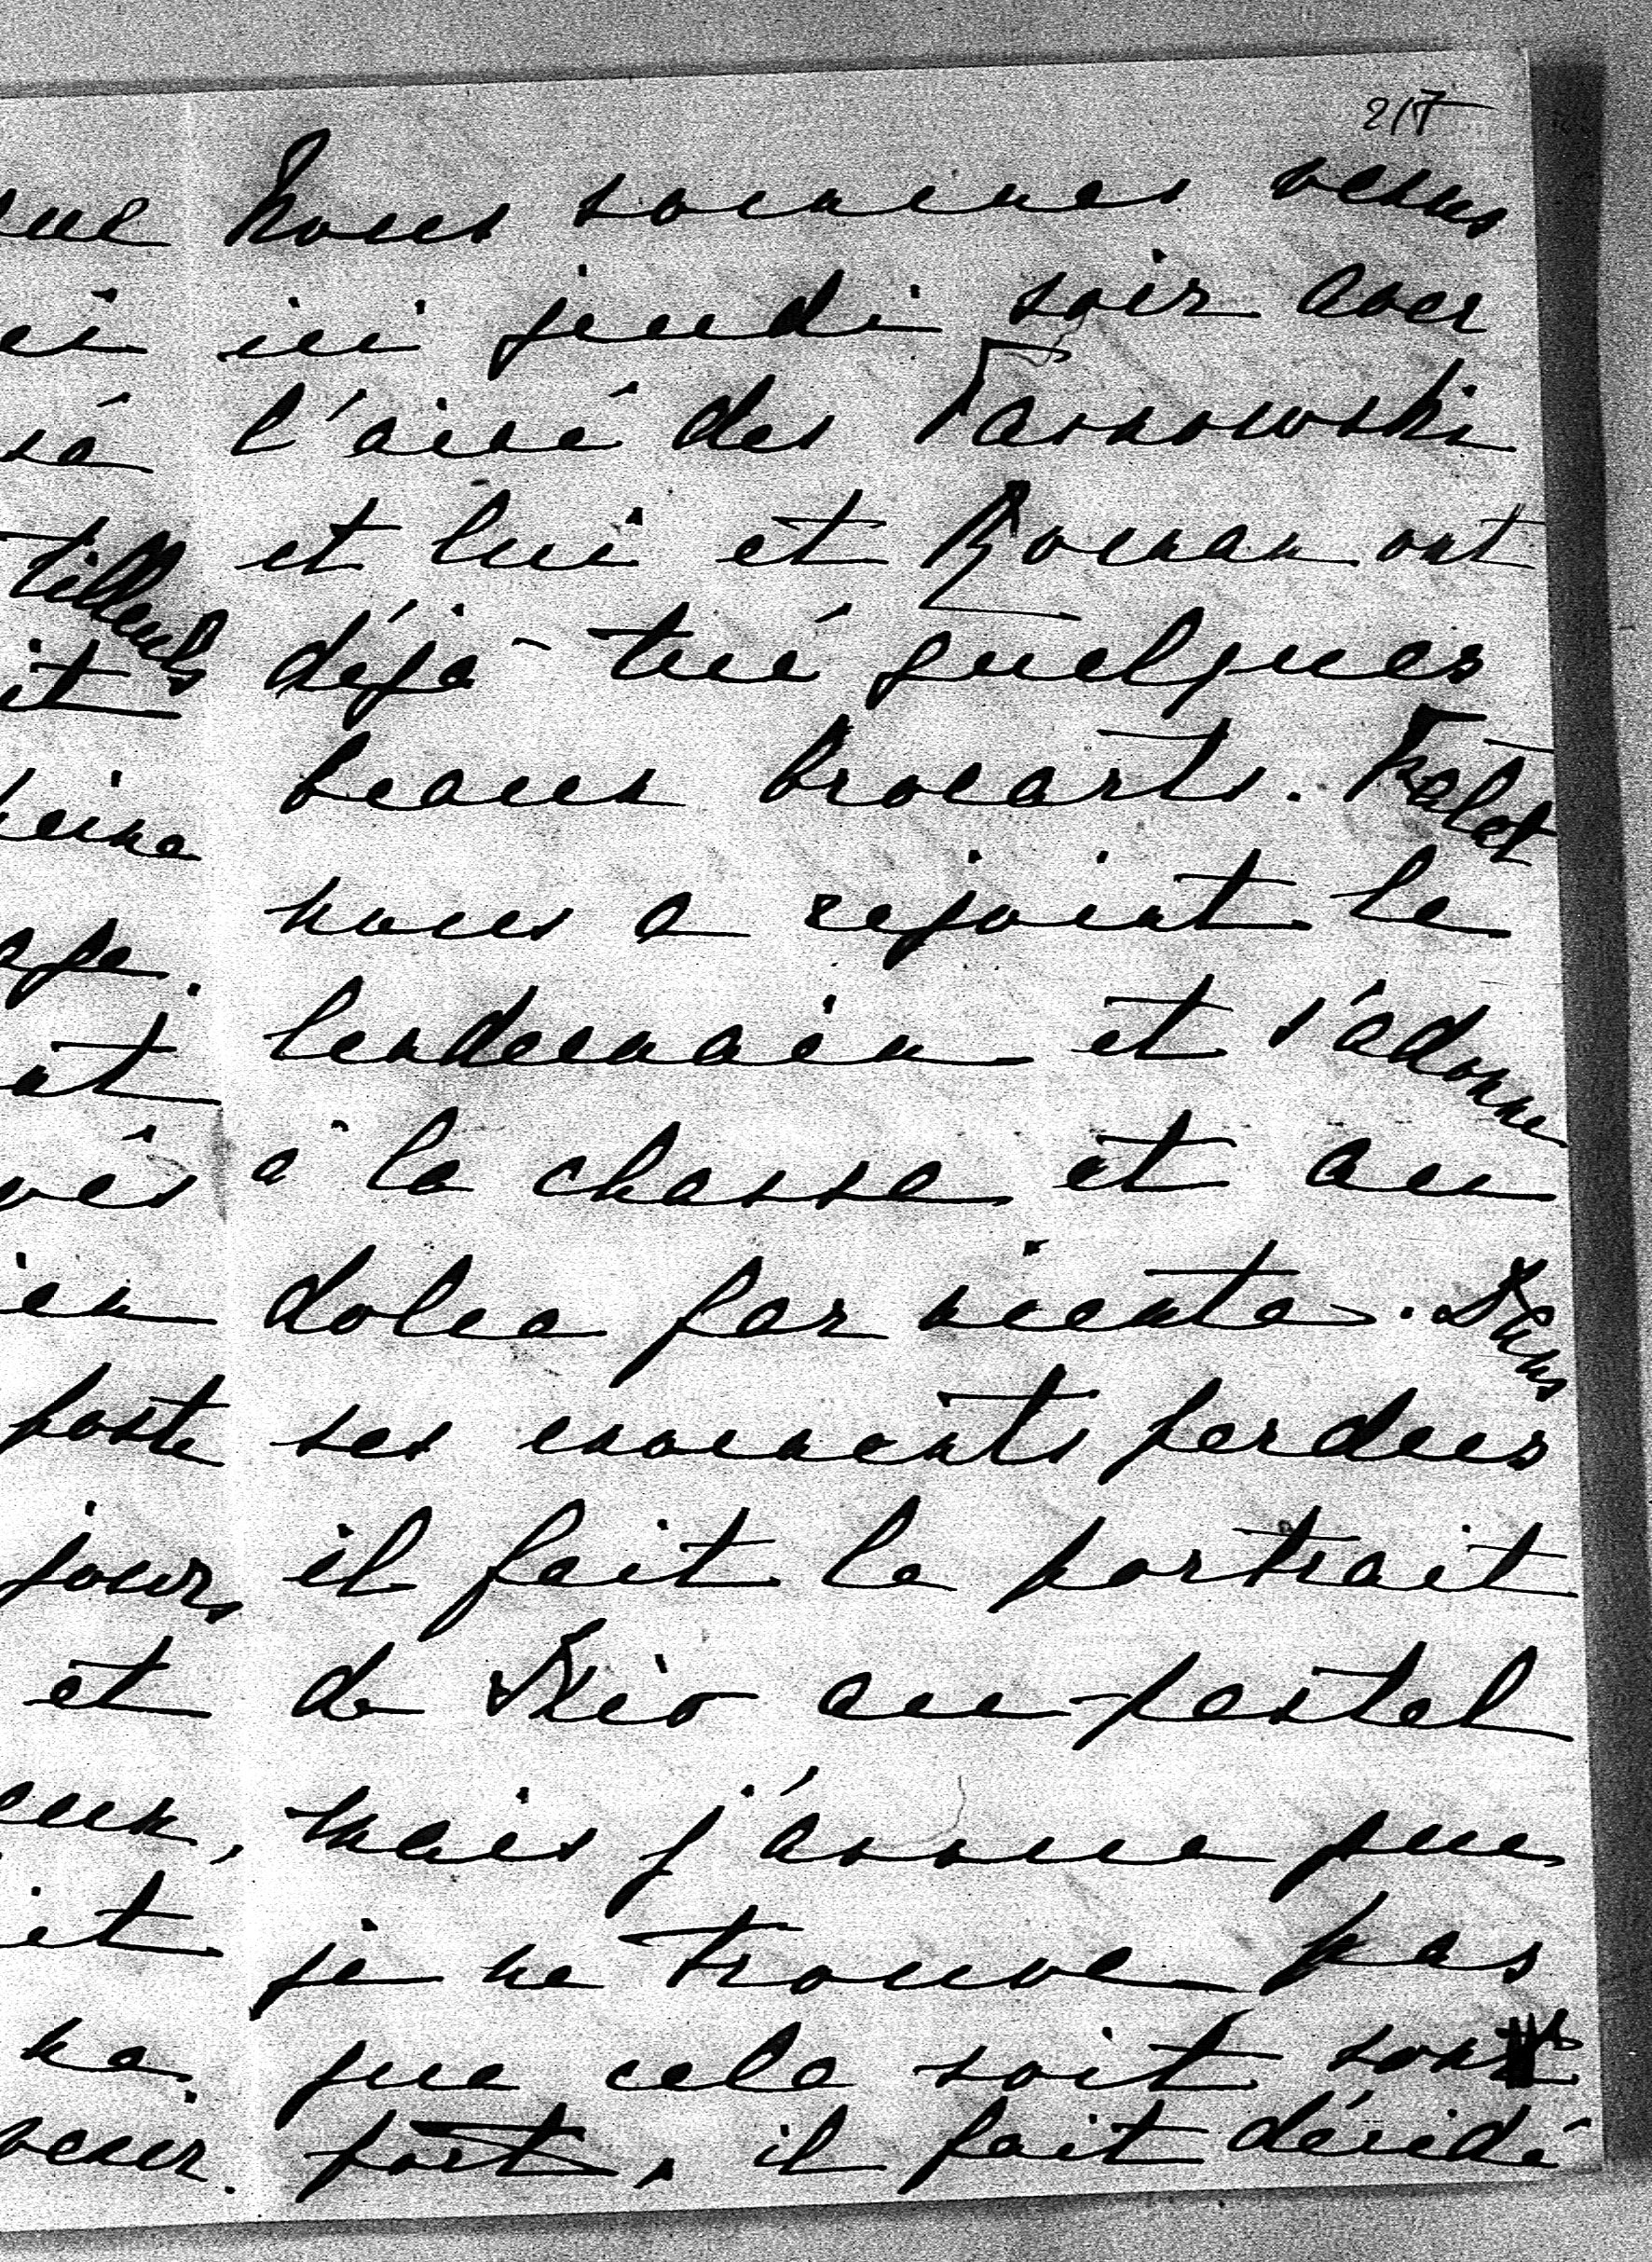 217
Nous sommes venus
ici jeudi soir avec
l'ainé des Tarnowski
et lui et Roman ont
déjà tué quelques
beaux brocarts. Falat
nous a rejoint le
lendemain et s'adonne
à la chasse et au
dolce far niente. Dans
ses moments perdus
il fait le portrait
de au pastel
mais j'avoue que
je ne trouve pas
que cela soit son
fort, il fait décidé
tilleuls
it
poste
jours
et